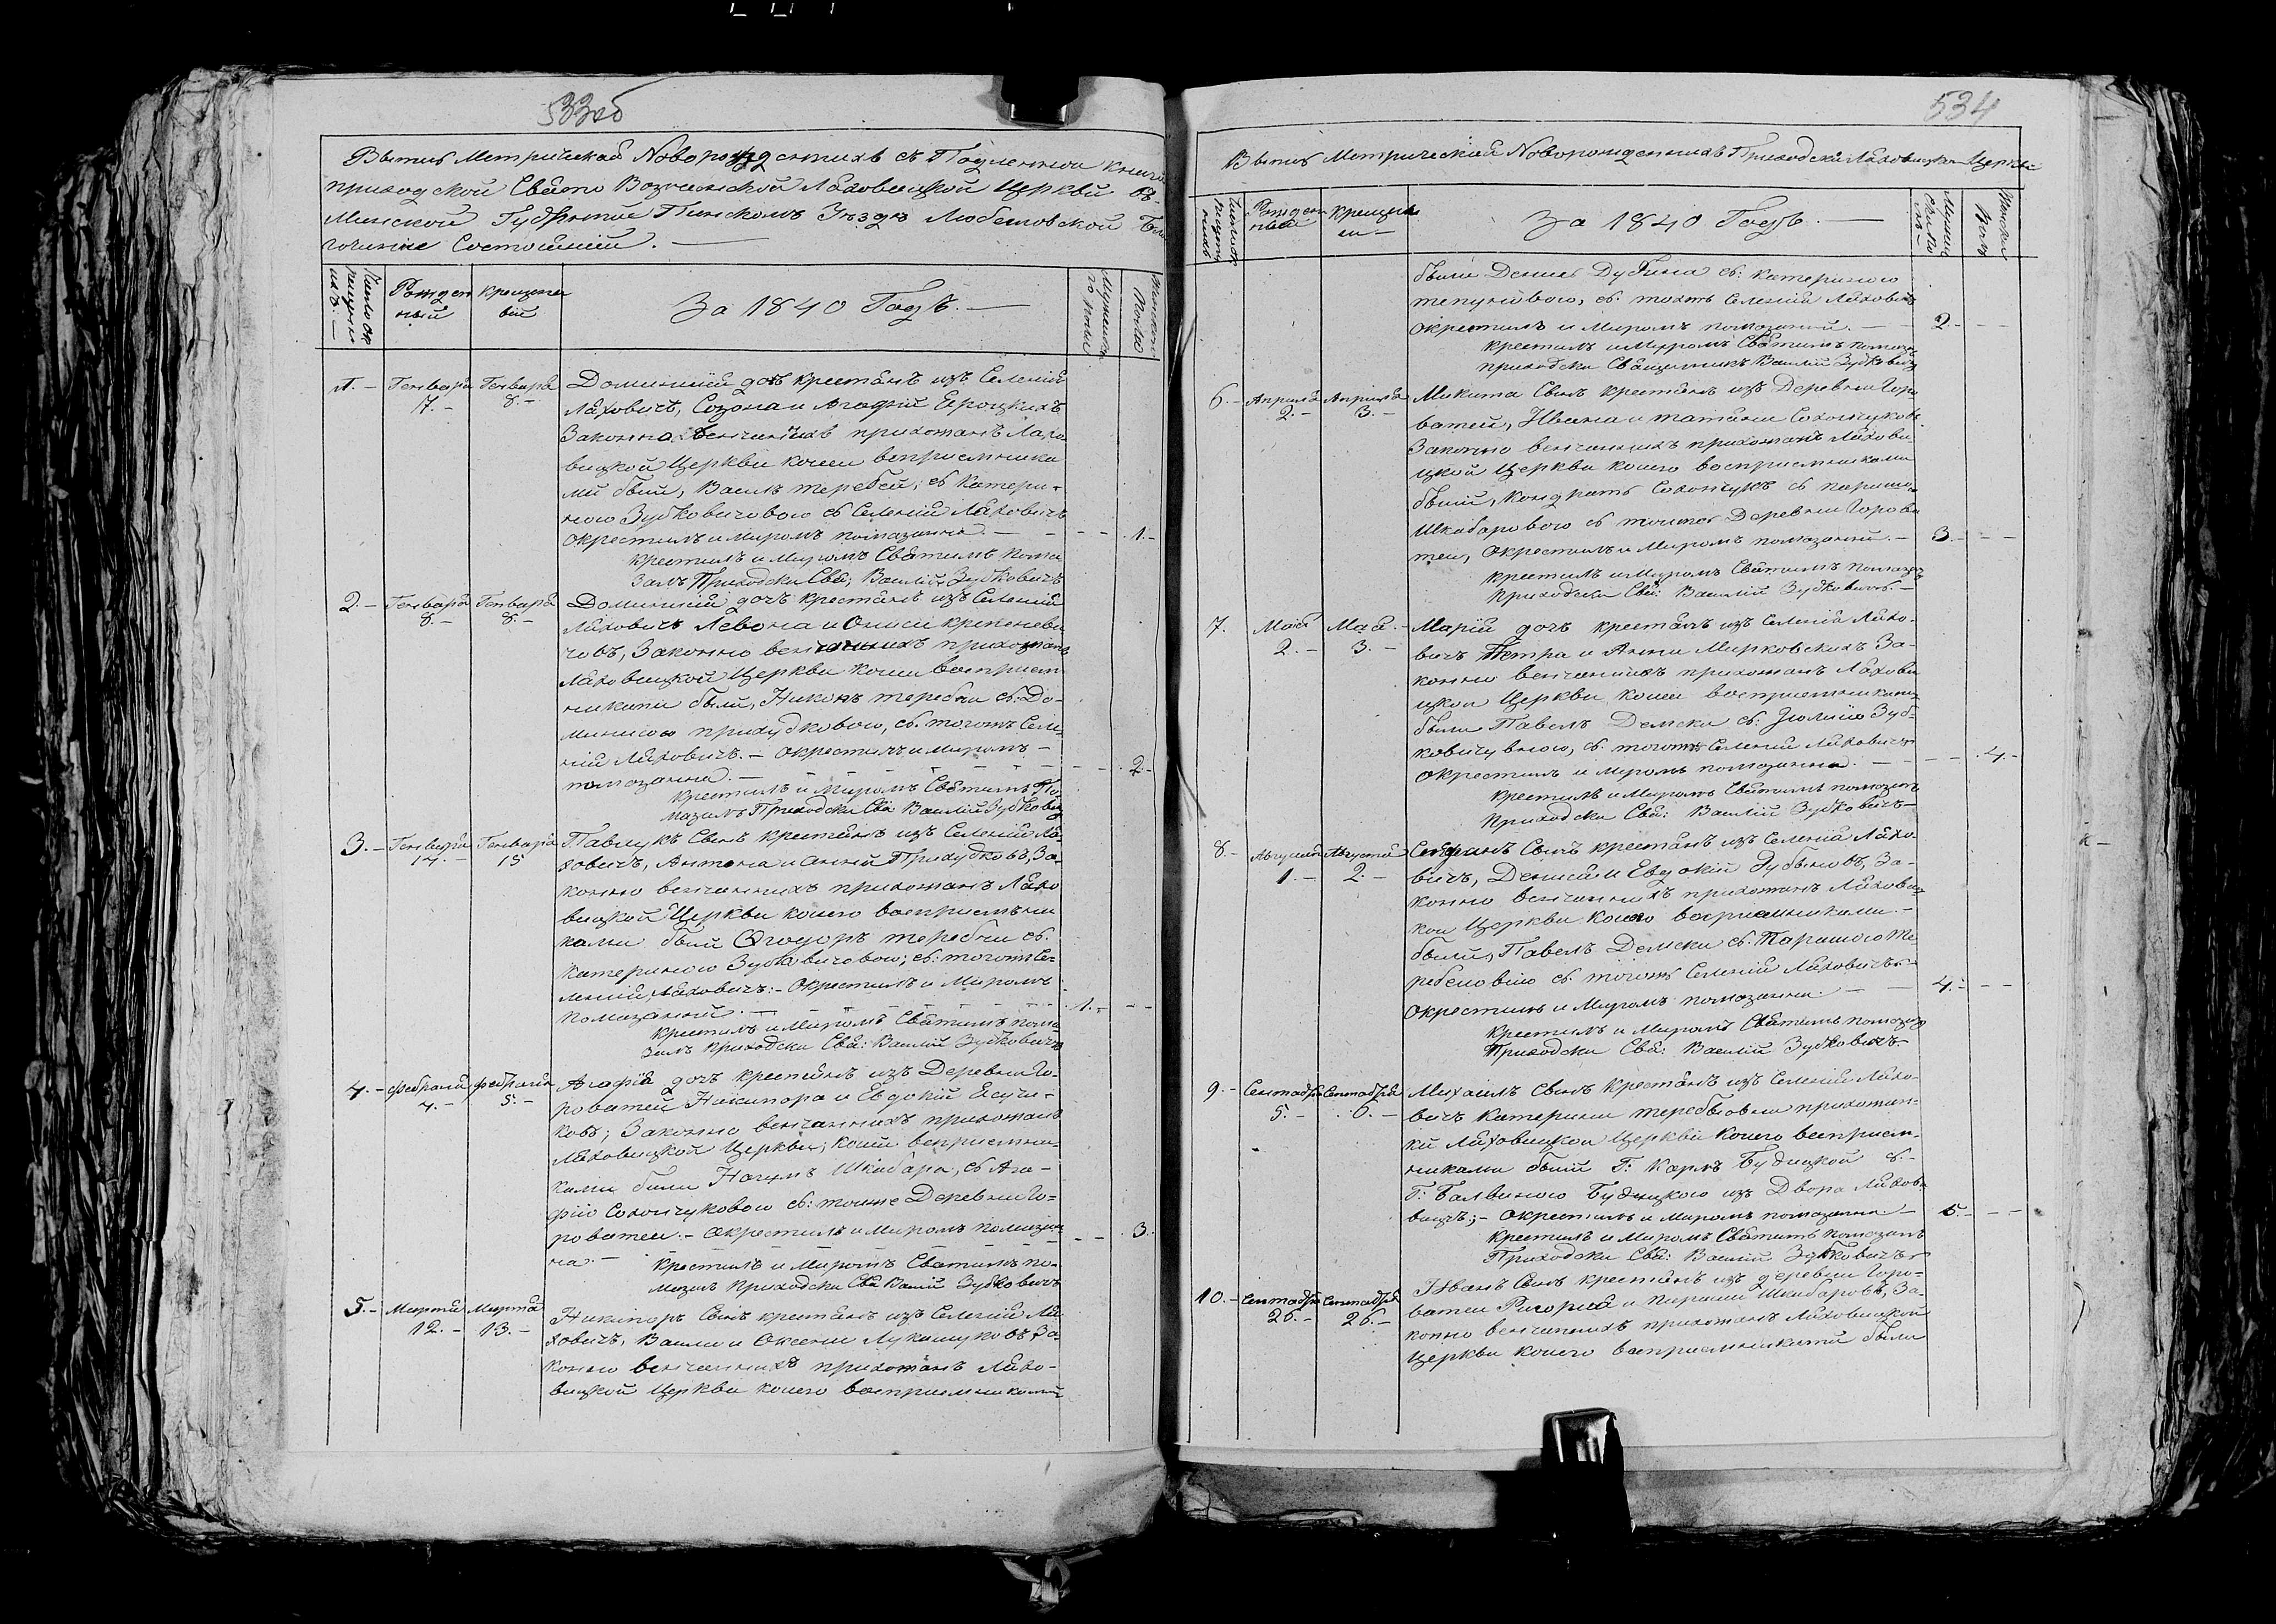 533об
Выпись Метрической Новорожденныхъ съ Подленной книги
приходской Свято Вознесенской Ляховицкой Церкви въ
Минской Губерніи Пинскомъ Уѣздѣ Любешовской Бла
гочинія Состоящій. —
Рожден
ный
крещен
ій
За 1840 Годъ. —
Мужеска
го полу
Женски
Полъ
1. — Генваря Генваря Доминикія дочь крестьянъ изъ Селенія
7. — 8. — Ляховичъ, Созона и Агафіи
Законно венчанныхъ прихожанъ Ляхо
вицкой Церкви коеи воспріемника
ми были, Василь теребей, съ Катери-
ною Зубковичовою съ Селенія Ляховичъ
Окрестилъ и миромъ помазанна. — 1. —
Крестилъ и Миромъ Святымъ пома
залъ Приходски Свя; Василій Зубковичъ
2. — Генваря Генваря Доминикія дочь крестьянъ изъ Селенія
8. — 8. — Ляховичъ Левона и
човъ, Законно венчанныхъ прихожанъ
Ляховицкой Церкви коеи воспріем
никами были, Никонъ теребеи съ: До-
миникою прихудковою, съ. тогожъ Селе
нія Ляховичъ. — Окрестилъ и миромъ —
помазанна. — 2. —
Крестилъ и Миромъ Святымъ По
мазилъ Приходски Свя Василій Зубкович
3. — Генваря Генваря Павлукъ Сынъ крестьянъ изъ Селенія Ля-
14. — 15 ховичъ, Антона и Анны Прихудковъ, За-
конно венчанныхъ прихожанъ Ляхо
вицкой Церкви коего воспріемни
ками были Ѳеодоръ теребеи съ.
катериною Зубковичовою; съ: тогожъ Се-
ленія, Ляховичъ: — Окрестилъ и Миромъ
помазанный. — 1. —
Крестилъ и Миромъ Святымъ пома-
залъ приходски Свя: Василій Зубковичъ
4. — Февраля Февраля Агафія дочь крестьянъ изъ Деревни Го-
4. — 5. — роватей Никипора и Евдокіи
ковъ; Законно венчанныхъ прихожанъ
Ляховицкой Церкви; коеи воспріемни-
ками были Наумъ Шкабара, съ Ага-
фіею Солончуковою съ: тоиже Деревни Го-
роватеи. — Окрестилъ и Миромъ помазан
на. — 3. —
Крестилъ и Миромъ Святымъ по-
мазилъ Приходски Свя Василій Зубковичъ
5. — Марта Марта Никипоръ Сынъ крестьянъ изъ Селенія Ля
12. — 13. — ховичъ, Васили и Оксени Лукашуковъ, За
конно венчанныхъ прихожанъ Ляхо-
вицкой Церкви коего воспріемниками
534
Выпись Метрической Новорожденныхъ Приходски Ляховицкои Церкви
Рожден
ный
Крещен
ій —
За 1840 Годъ. —
Женски
Полъ
были Денисъ Дубина съ: катериною
съ. тогожъ Селенія Ляховичъ
Окрестилъ и Миромъ помазанный. — 2 —
Крестилъ и Миромъ Святымъ помаза
приходски Священникъ Василій Зубкович
6. — Апрѣля Апрѣля Микита Сынъ крестьянъ изъ Деревни Горо
2. — 3. — ватей, Ивана и татьяни Солончуковъ
Законно венчанныхъ прихожанъ Ляхови
цкой Церкви коего воспріемниками
были, кондратъ Солончукъ съ
Шкабаровою съ тоиже Деревни Горова
теи, Окрестилъ и Миромъ помазанный. — 3. —
крестилъ и Миромъ Святымъ помазалъ
приходски Свя: Василій Зубковичъ. —
7. Мая Мая. — Марія дочь крестьянъ изъ Селенія Ляхо-
2. — 3. — вичъ Петра и Анни Мирковскихъ За-
конно венчанныхъ прихожанъ Ляхови
цкои Церкви коеи воспріемниками
были Павелъ Демски съ: Зуб-
съ. тогожъ Селенія Ляховичъ
окрестилъ и Миромъ помазанна. — 4. —
крестилъ и Миромъ Святымъ помазалъ
приходски Свя: Василій Зубковичъ —
8. — Августа Августа Сынъ крестьянъ изъ Селенія Ляхо
1. — 2. — вичъ, Дениса и Евдокіи Дубиновъ, За-
конно венчанныхъ прихожанъ Ляховиц
кои Церкви коего воспріемниками. —
были, Павелъ Демски съ. Те
съ. тогожъ Селенія Ляховичъ
Окрестилъ и Миромъ помазанна. — 4. —
крестилъ и Миромъ Святымъ помазал
Приходски Свя: Василій Зубковичъ. —
9. — Сентября Сентября Михаилъ Сынъ крестьянъ изъ Селенія Ляхо-
5. — 6. — вичъ катерини теребеювни прихожан-
ки Ляховицкои Церкви коего воспріем-
никами были Г: Карлъ Будзцкой съ. —
Г: Бальвиною Будзцкою изъ Двора Ляхов
вичъ; — Окрестилъ и Миромъ помазанна. — 5. —
Крестилъ и Миромъ Святымъ помазалъ
Приходски Свя: Василій Зубковичъ
10. — Сентября Сентября Иванъ Сынъ крестьянъ изъ деревни Горо-
26. — 26. — ватеи Ригорія и Шкабаровъ, За-
конно венчанныхъ прихожанъ Ляховицкой
Церкви коего воспріемниками были